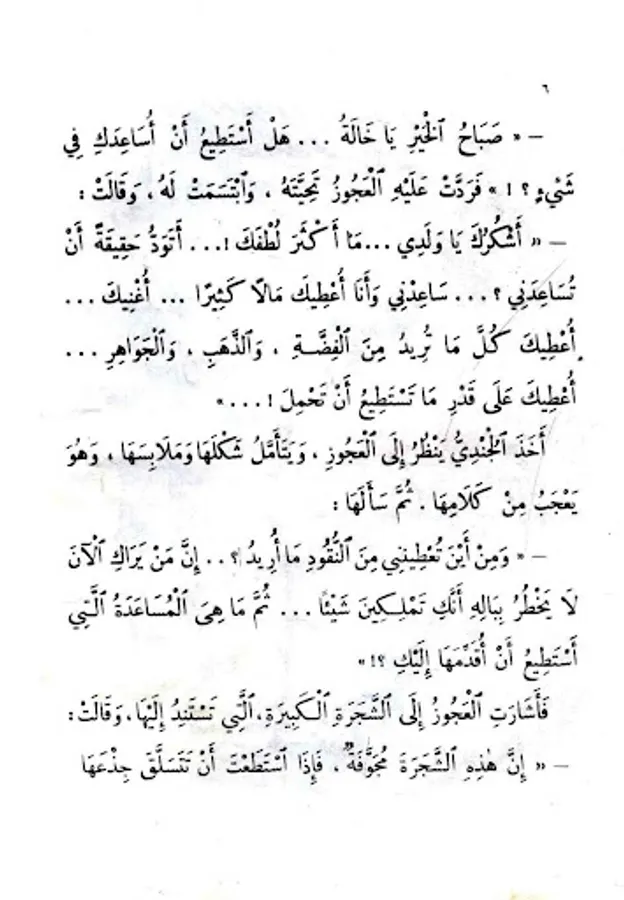 ٦
– « صَبَاحُ ٱلْخَيْرِ يَا خَالَةُ ... هَلْ أَسْتَطِيعُ أَنْ أُسَاعِدَكِ فِي
شَيْءٍ ؟ ! » فَرَدَّتْ عَلَيْهِ ٱلْعَجُوزُ تَحِيَّتَهُ ، وَٱبْتَسَمَتْ لَهُ ، وَقَالَتْ :
– « أَشْكُرُكَ يَا وَلَدِي ... مَا أَكْثَرَ لُطْفَكَ ! ... أَتَوَدُّ حَقِيقَةً أَنْ
تُسَاعِدَنِي ؟ ... سَاعِدْنِي وَأَنَا أُعْطِيكَ مَالًا كَثِيرًا ... أُغْنِيكَ ...
أُعْطِيكَ كُلَّ مَا تُرِيدُ مِنَ ٱلْفِضَّةِ ، وَٱلذَّهَبِ ، وَٱلْجَوَاهِرِ ...
أُعْطِيكَ عَلَى قَدْرِ مَا تَسْتَطِيعُ أَنْ تَحْمِلَ ! ... »
أَخَذَ ٱلْجُنْدِيُّ يَنْظُرُ إِلَى ٱلْعَجُوزِ ، وَيَتَأَمَّلُ شَكْلَهَا وَمَلَابِسَهَا ، وَهُوَ
يَعْجَبُ مِنْ كَلَامِهَا . ثُمَّ سَأَلَهَا :
– « وَمِنْ أَيْنَ تُعْطِينِي مِنَ ٱلنُّقُودِ مَا أُرِيدُ ؟ .. إِنَّ مَنْ يَرَاكِ ٱلْآنَ
لَا يَخْطُرُ بِبَالِهِ أَنَّكِ تَمْلِكِينَ شَيْئًا ... ثُمَّ مَا هِيَ ٱلْمُسَاعَدَةُ ٱلَّتِي
أَسْتَطِيعُ أَنْ أُقَدِّمَهَا إِلَيْكِ ؟! »
فَأَشَارَتِ ٱلْعَجُوزُ إِلَى ٱلشَّجَرَةِ ٱلْكَبِيرَةِ ، ٱلَّتِي تَسْتَنِدُ إِلَيْهَا ، وَقَالَتْ :
– « إِنَّ هٰذِهِ ٱلشَّجَرَةَ مُجَوَّفَةٌ ، فَإِذَا ٱسْتَطَعْتَ أَنْ تَتَسَلَّقَ جِذْعَهَا